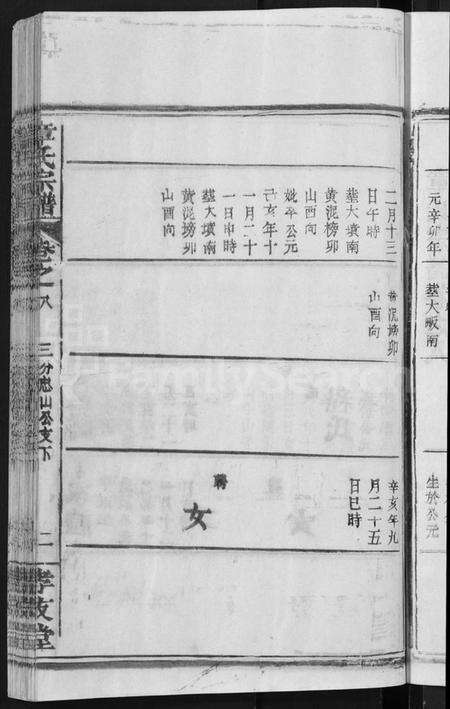 元辛卯年
塟大畈南
生於公元
二月十三
日午時
塟大墳南
黄泥塝卯
山酉向
妣卒公元
己亥年十
一月二十
一日申時
塟大墳南
黄泥塝卯
山酉向
黄泥塝卯
山酉向
辛亥年九
月二十五
日巳時
聘
女
童氏宗譜
卷之八
三分思山公支下
二
孝友堂